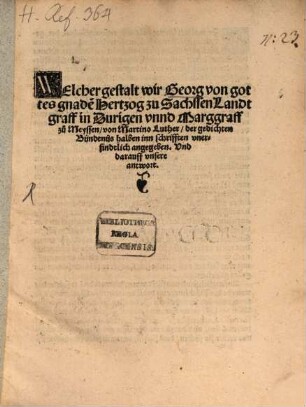 H. Ref. 364
n: 23.
WElcher gestalt wir Georg von got
tes gnadē Hertzog zu Sachssen Landt
graff in Durigen vnnd Marggraff
zů Meyssen / von Martino Luther / der gedichten
Bündtnüs halben inn schrifften vner-
findtlich angegeben. Vnd
darauff vnsere
antwort.
BIBLIOTHECA
REGIA
MONACENSIS